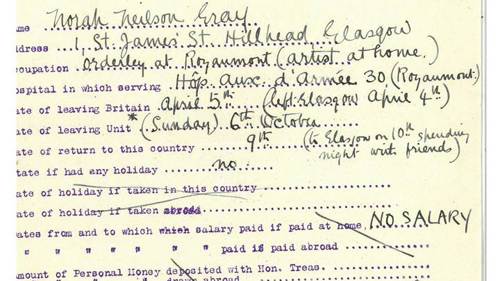 ame Norah Neilson Gray
ddress 1, St. James' St. Hillhead, Glasgow
ccupation Orderley at Royaumont (artist at home.)
ospital in which serving Hôp. Aux. d'Armée 30 (Royaumont.)
ate of leaving Britain April 5th (left Glasgow April 4th)
ate of leaving Unit *(Sunday) 6th October
ate of return to this country 9th (to Glasgow on 10th spending night with friend)
tate if had any holiday no.
ate of holiday if taken in this country
ate of holiday if taken abroad
ates from and to which which salary paid if paid at home, NO SALARY
" " " " " " paid is paid abroad
mount of Personal Money deposited with Hon. Treas.
" " " drawn abroad